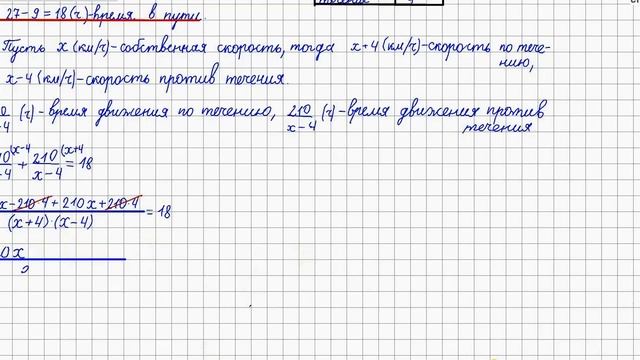 течение
27-9=18(ч)-время в пути.
Пусть x(км/ч)-собственная скорость, тогда x+4(км/ч)-скорость по тече-
нию,
x-4(км/ч)-скорость против течения.
0/-4 (ч)-время движения по течению, 210/x-4 (ч)-время движения против
течения
0(x-4/-4 + 210(x+4/x-4 = 18
x-210·4+210x+210·4/(x+4)·(x-4) = 18
0x